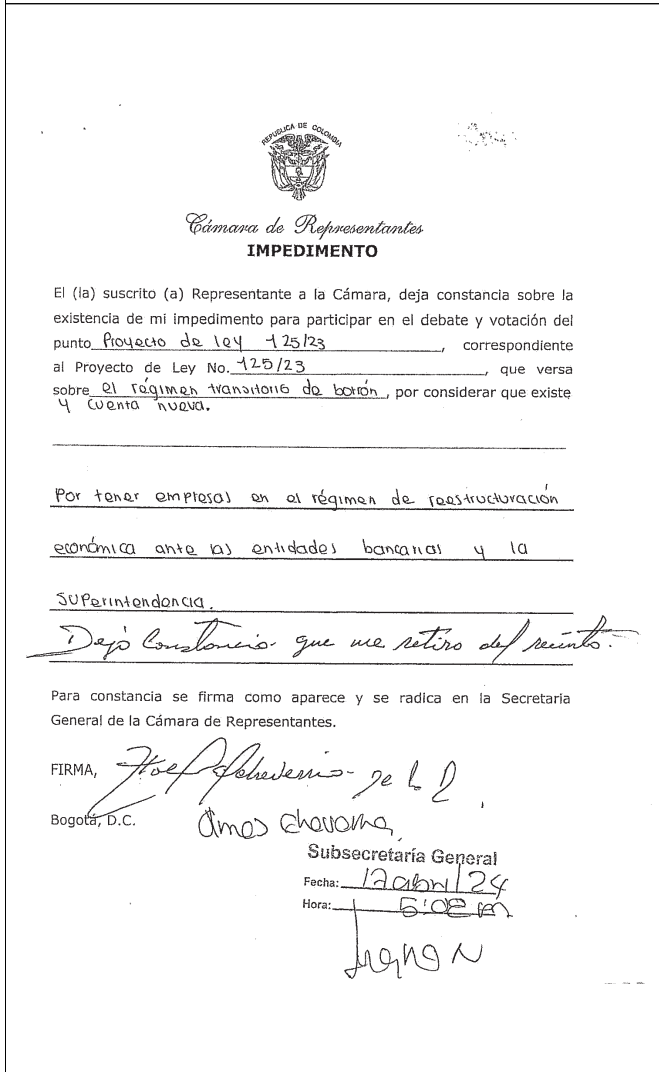 REPUBLICA DE COLOMBIA
Cámara de Representantes
IMPEDIMENTO
El (la) suscrito (a) Representante a la Cámara, deja constancia sobre la
existencia de mi impedimento para participar en el debate y votación del
punto Proyecto de ley 125/23, correspondiente
al Proyecto de Ley No. 125/23, que versa
sobre el régimen transitorio de borrón, por considerar que existe
y cuenta nueva.
Por tener empresas en el régimen de reestructuración
económica ante las entidades bancarias y la
Superintendencia.
Dejo Constancia que me retiro del recinto.
Para constancia se firma como aparece y se radica en la Secretaria
General de la Cámara de Representantes.
FIRMA,
Bogotá, D.C.
Subsecretaría General
Fecha: 17 abril/24
Hora: 5:08 pm